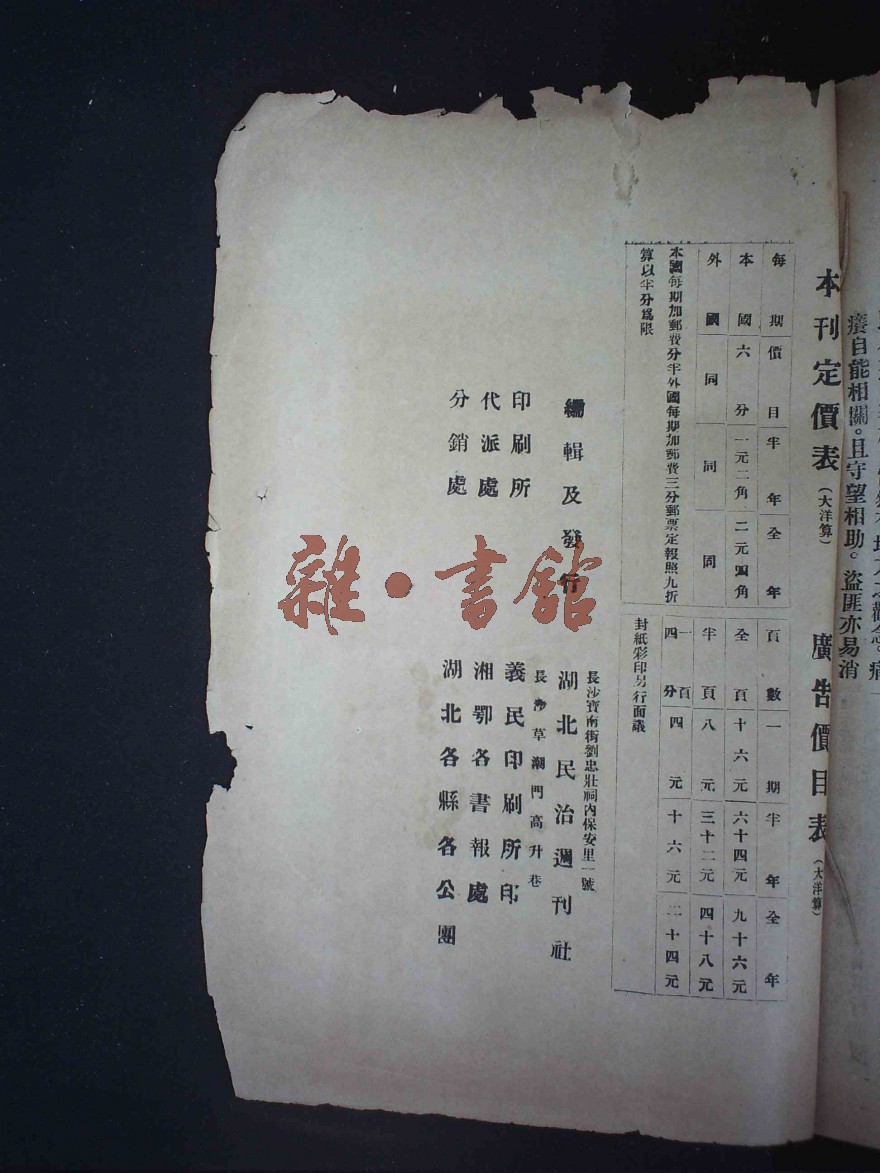 癢自能相關。且守望相助。盜匪亦易消
本刊定價表（大洋算）
每期價目 半年 全年
本國 六分 一元二角 二元四角
外國 同 同 同
本國每期加郵費分半外國每期加郵費三分郵票定報照九折
算以半分爲限
廣告價目表（大洋算）
頁數 一期 半年 全年
全頁 十六元 六十四元 九十六元
半頁 八元 三十二元 四十八元
四分一頁 四元 十六元 二十四元
封紙彩印另行面議
長沙寶南街劉忠壯祠內保安里一號
編輯及發行 湖北民治週刊社
長沙草潮門高升巷
印刷所 義民印刷所印
代派處 湘鄂各書報處
分銷處 湖北各縣各公團
雜·書館